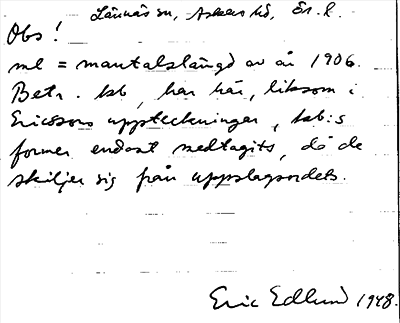 Lännäs sn, Askers hd, Ör. l.
Obs!
ml = mantalslängd av år 1906.
Betr. kb, har här, liksom i
Ericssons uppteckningar, kb:s
former endast medtagits, då de
skiljer sig från uppslagsordets.
Eric Edlund 1948.